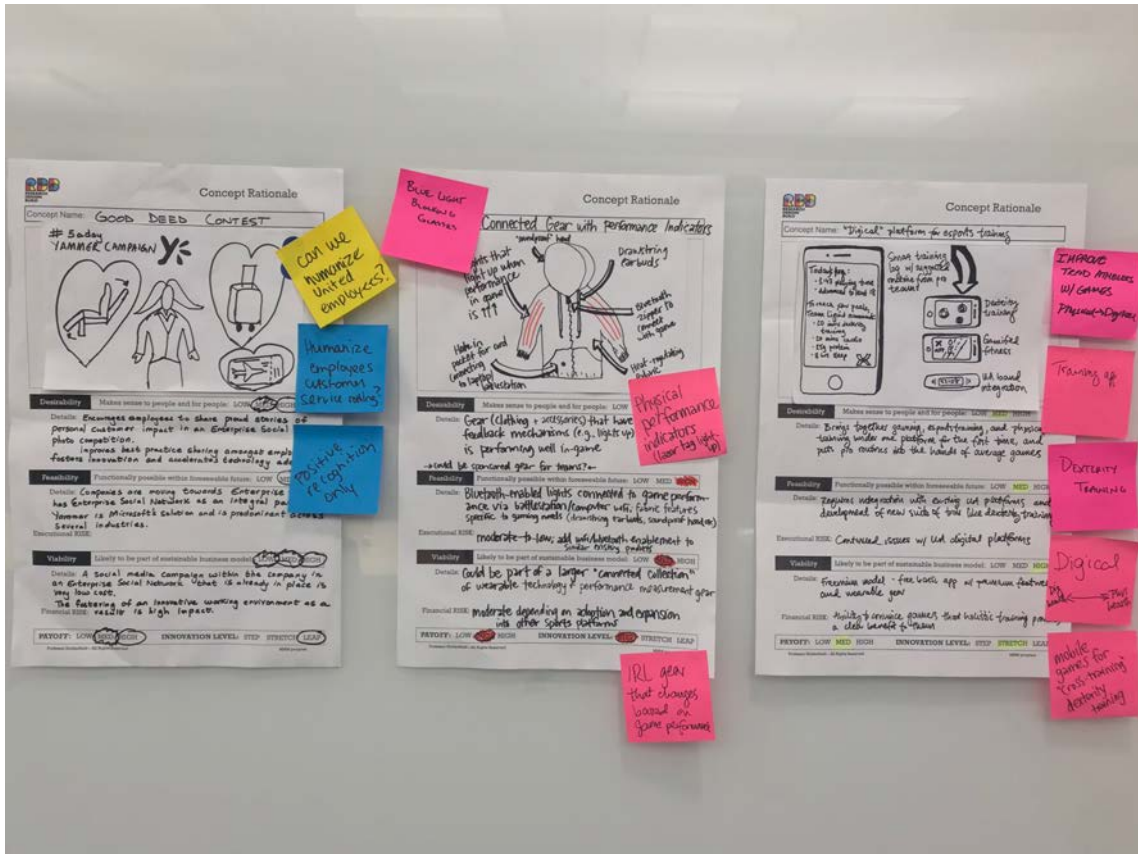 RDD
RESEARCH
DESIGN
BUILD
Concept Rationale
Concept Name: GOOD DEED CONTEST
# 5 a day
YAMMER CAMPAIGN
Desirability Makes sense to people and for people: LOW
Details: Encourages employees to share proud stories of
personal customer impact in an Enterprise Social
photo competition.
Improves best practice sharing amongst
fosters innovation and accelerates technology
Feasibility Functionally possible within foreseeable future: LOW
Details: Companies are moving towards Enterprise
has Enterprise Social Network as an integral
Yammer is Microsoft's solution and is predominant across
several industries.
Viability Likely to be part of sustainable business model: LOW MED HIGH
Details: A social media campaign within the company in
an Enterprise Social Network that is already in place is
very low cost.
The fostering of an innovative working environment as a
Financial RISK: result is high impact.
PAYOFF: LOW MED HIGH INNOVATION LEVEL: STEP STRETCH LEAP
can we
humanize
united
employees?
Humanize
employees
customer
service
positive
recognition
only
BLUE LIGHT
BLOCKING
GLASSES
Concept Rationale
Connected Gear with performance indicators
"soundproof" hood
lights that
light up when
performance
in game
is ↑↑↑
Drawstring
earbuds
Bluetooth
zipper to
connect
with game
Hole in
pocket for cord
connecting
to laptop/
battlestation
Heat-regulating
Desirability Makes sense to people and for people: LOW
Details: Gear (clothing + accessories) that have
feedback mechanisms (e.g., lights up)
is performing well in-game
→could be sponsored gear for teams?←
Feasibility Functionally possible within foreseeable future: LOW MED HIGH
Details: Bluetooth-enabled lights connected to game perform-
ance via battlestation/computer wifi, fabric features
specific to gaming needs (drawstring earbuds, soundproof hood,
Executional RISK: moderate-to-low; add wifi/bluetooth enablement to
similar existing products
Viability Likely to be part of sustainable business model: LOW HIGH
Details: Could be part of a larger "connected collection"
of wearable technology + performance measurement gear
Financial RISK: moderate depending on adoption and expansion
into other sports platforms
PAYOFF: LOW HIGH INNOVATION LEVEL: STRETCH LEAP
Physical
performance
indicators
(laser tag light-
up)
IRL gear
that changes
based on
game performance
RDD
RESEARCH
DESIGN
BUILD
Concept Rationale
Concept Name: "Digical" platform for esports training
Smart training
log w/ suggested
routine from pro
teams
Dexterity
training
Gamified
fitness
UA band
integration
Desirability Makes sense to people and for people: LOW MED HIGH
Details: Brings together gaming, esports training, and physical
training under one platform for the first time, and
puts pro routines into the hands of average gamers
Feasibility Functionally possible within foreseeable future: LOW MED HIGH
Details: Requires integration with existing UA platforms and
development of new suite of tools like dexterity training
Executional RISK: Continued issues w/ UA digital platforms
Viability Likely to be part of sustainable business model: LOW MED HIGH
Details: Freemium model - free basic app w/ premium features
and wearable gear
Financial RISK: Ability to convince gamers that holistic training
PAYOFF: LOW MED HIGH INNOVATION LEVEL: STEP STRETCH LEAP
IMPROVE
TRAD ATHLETES
W/ GAMES
PHYSICAL→DIGITAL
Training app
DEXTERITY
TRAINING
Digical
mobile
games for
"cross-training"
dexterity
training